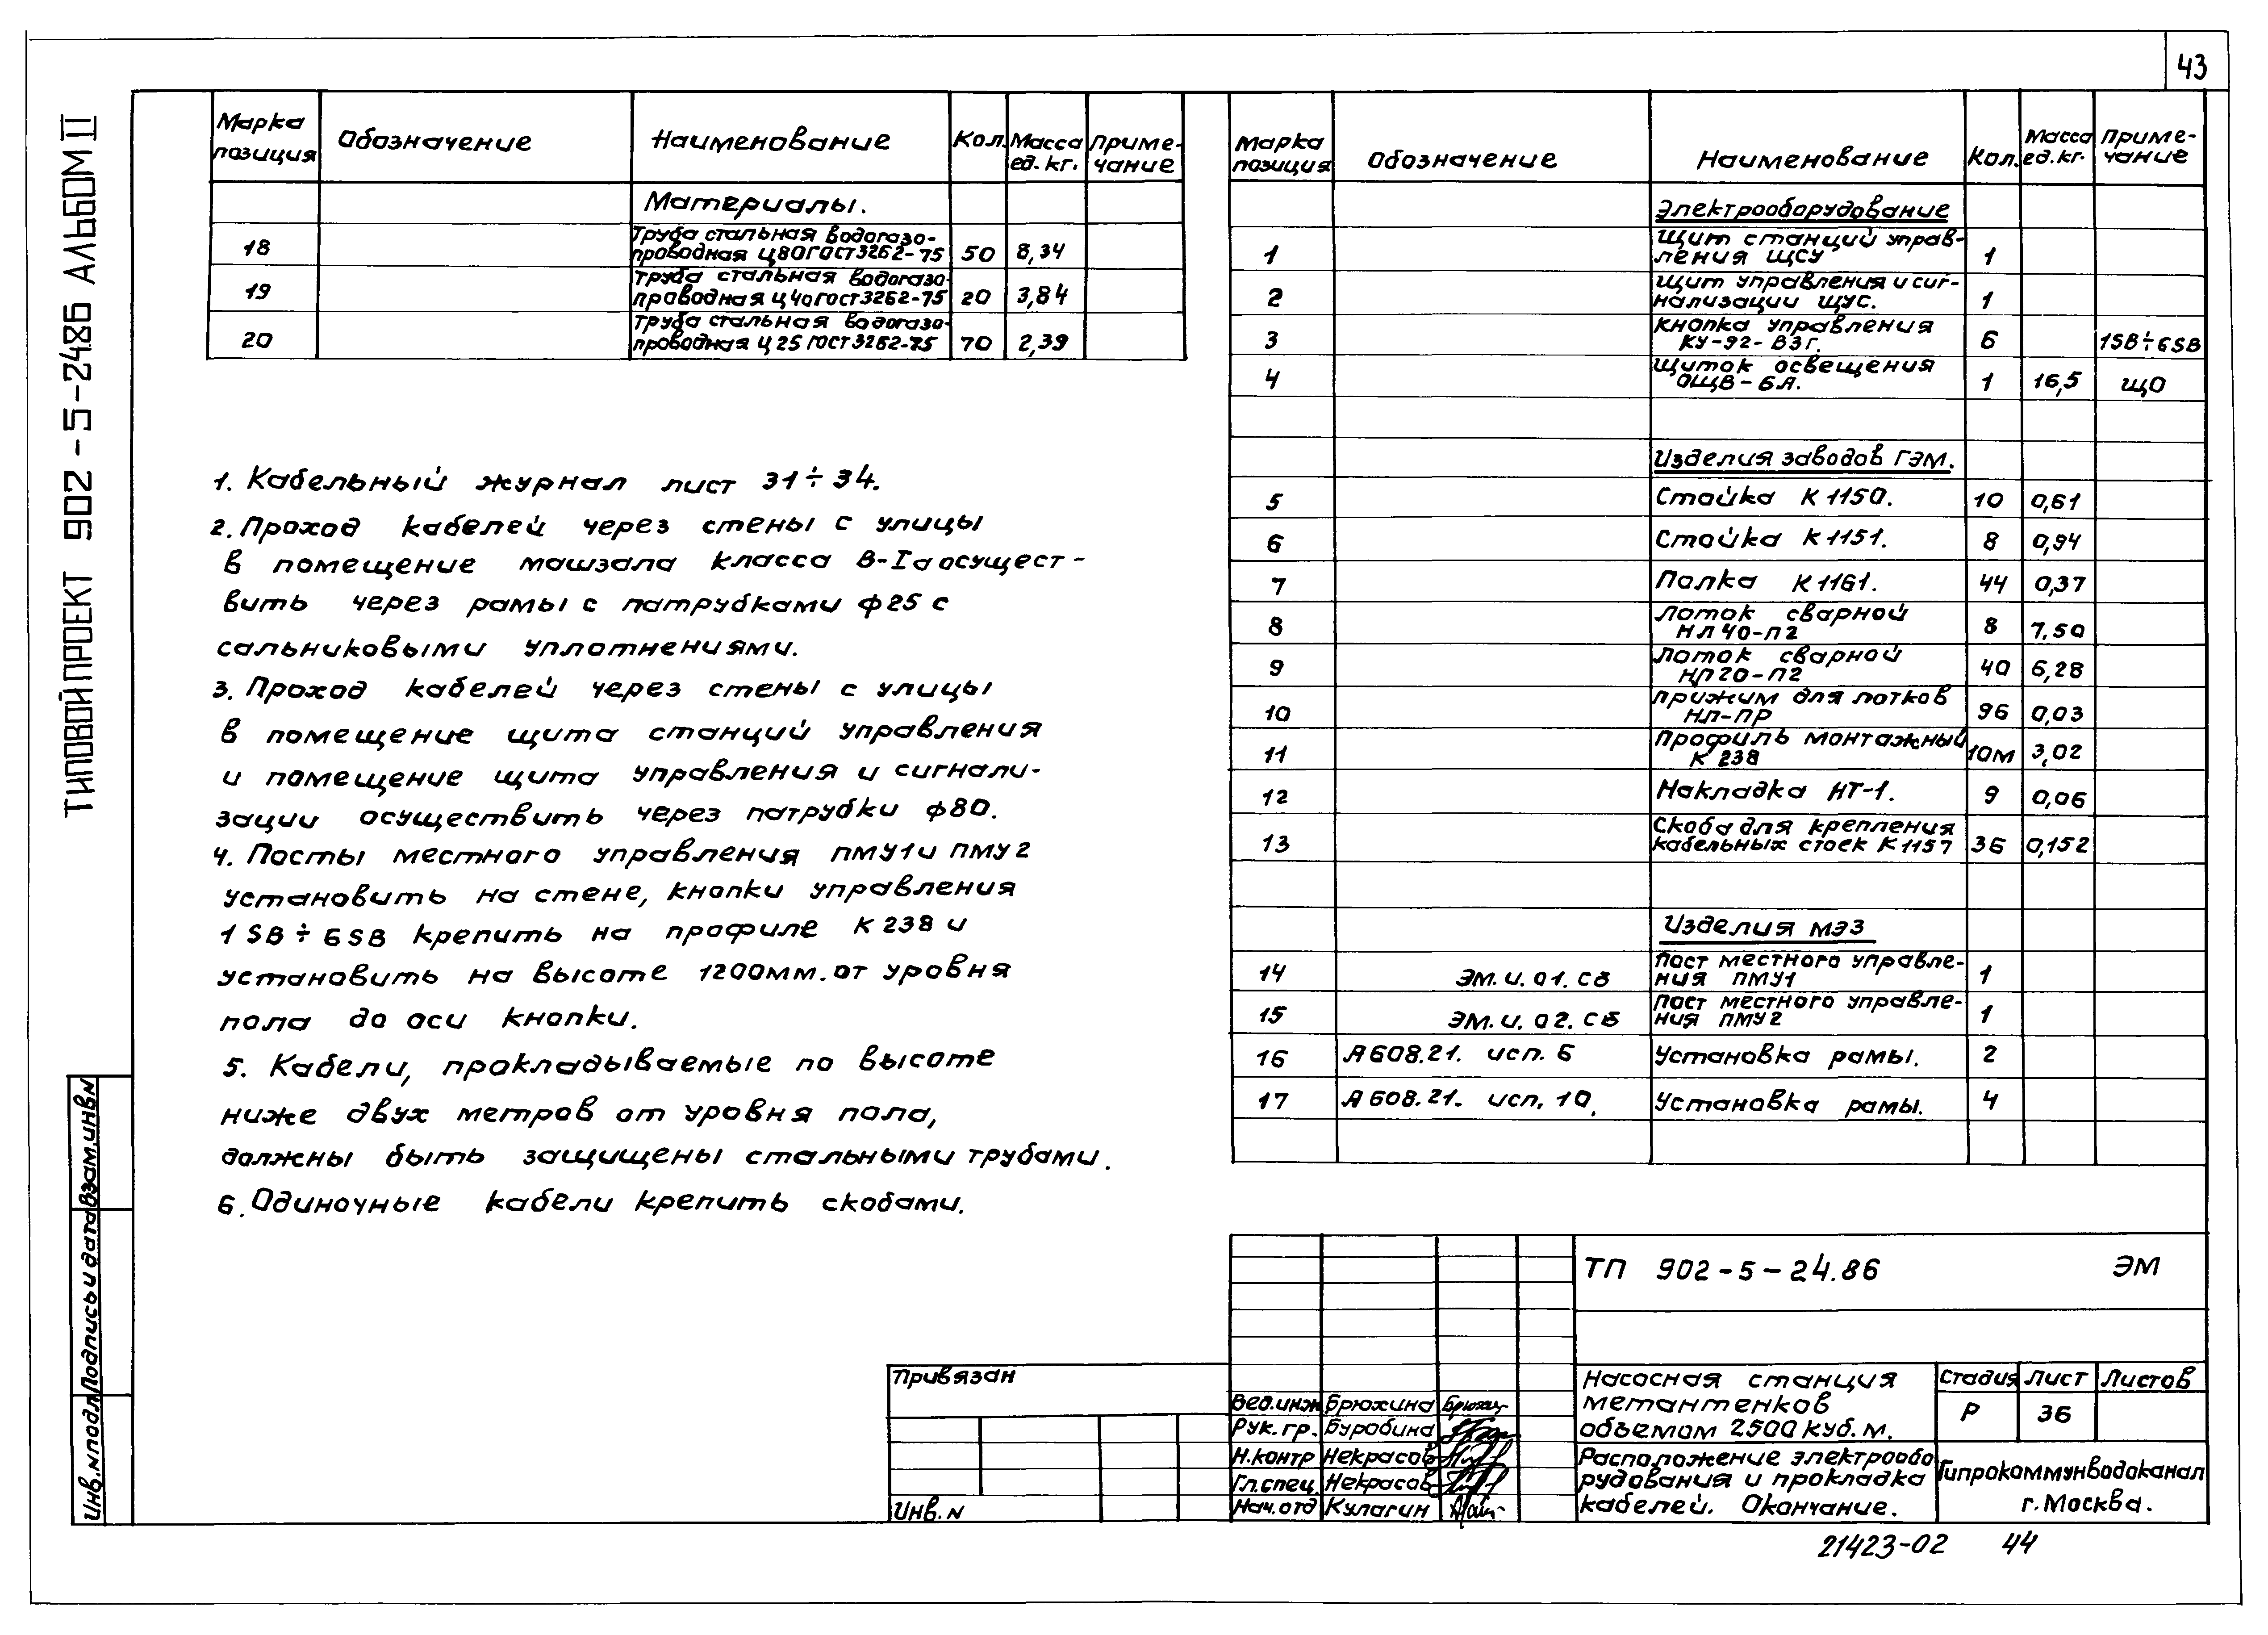 43
ТИПОВОЙ ПРОЕКТ 902-5-24.86 АЛЬБОМ II
Марка позиция Обозначение Наименование Кол. Масса ед. кг. Приме-чание
Материалы.
Труба стальная водогазо-
18 проводная Ц80 ГОСТ 3262-75 50 8,34
Труба стальная водогазо-
19 проводная Ц40 ГОСТ 3262-75 20 3,84
Труба стальная водогазо-
20 проводная Ц25 ГОСТ 3262-75 70 2,39
1. Кабельный журнал лист 31÷34.
2. Проход кабелей через стены с улицы
в помещение машзала класса В-Iа осущест-
вить через рамы с патрубками ф25 с
сальниковыми уплотнениями.
3. Проход кабелей через стены с улицы
в помещение щита станций управления
и помещение щита управления и сигнали-
зации осуществить через патрубки ф80.
4. Посты местного управления ПМУ1 и ПМУ2
установить на стене, кнопки управления
1SB÷6SB крепить на профиле К238 и
установить на высоте 1200мм. от уровня
пола до оси кнопки.
5. Кабели, прокладываемые по высоте
ниже двух метров от уровня пола,
должны быть защищены стальными трубами.
6. Одиночные кабели крепить скобами.
Марка позиция Обозначение Наименование Кол. Масса ед. кг. Приме-чание
Электрооборудование
Щит станций управ-
1 ления ЩСУ 1
Щит управления и сиг-
2 нализации ЩУС. 1
Кнопка управления
3 КУ-92-ВЗГ. 6 1SB÷6SB
Щиток освещения
4 ОЩВ-6А. 1 16,5 ЩО
Изделия заводов ГЭМ.
5 Стойка К1150. 10 0,61
6 Стойка К1151. 8 0,94
7 Полка К1161. 44 0,37
Лоток сварной
8 НЛ40-П2 8 7,50
Лоток сварной
9 НЛ20-П2 40 6,28
Прижим для лотков
10 НЛ-ПР 96 0,03
Профиль монтажный
11 К238 10м 3,02
12 Накладка НТ-1. 9 0,06
Скоба для крепления
13 кабельных стоек К1157 36 0,152
Изделия МЭЗ
Пост местного управле-
14 ЭМ.И.01.СБ ния ПМУ1 1
Пост местного управле-
15 ЭМ.И.02.СБ ния ПМУ2 1
16 А608.21. исп. 6 Установка рамы. 2
17 А608.21. исп. 10. Установка рамы. 4
ТП 902-5-24.86 ЭМ
Привязан
Инв. N
Вед.инж Брюхина
Рук. гр. Буробина
Н.контр Некрасов
Гл.спец. Некрасов
Нач.отд Кулагин
Насосная станция
метантенков
объемом 2500 куб. м.
Стадия Лист Листов
Р 36
Расположение электрообо
рудования и прокладка
кабелей. Окончание.
Гипрокоммунводоканал
г. Москва.
Взам.инв.N
Подпись и дата
Инв.Nподл
21423-02 44